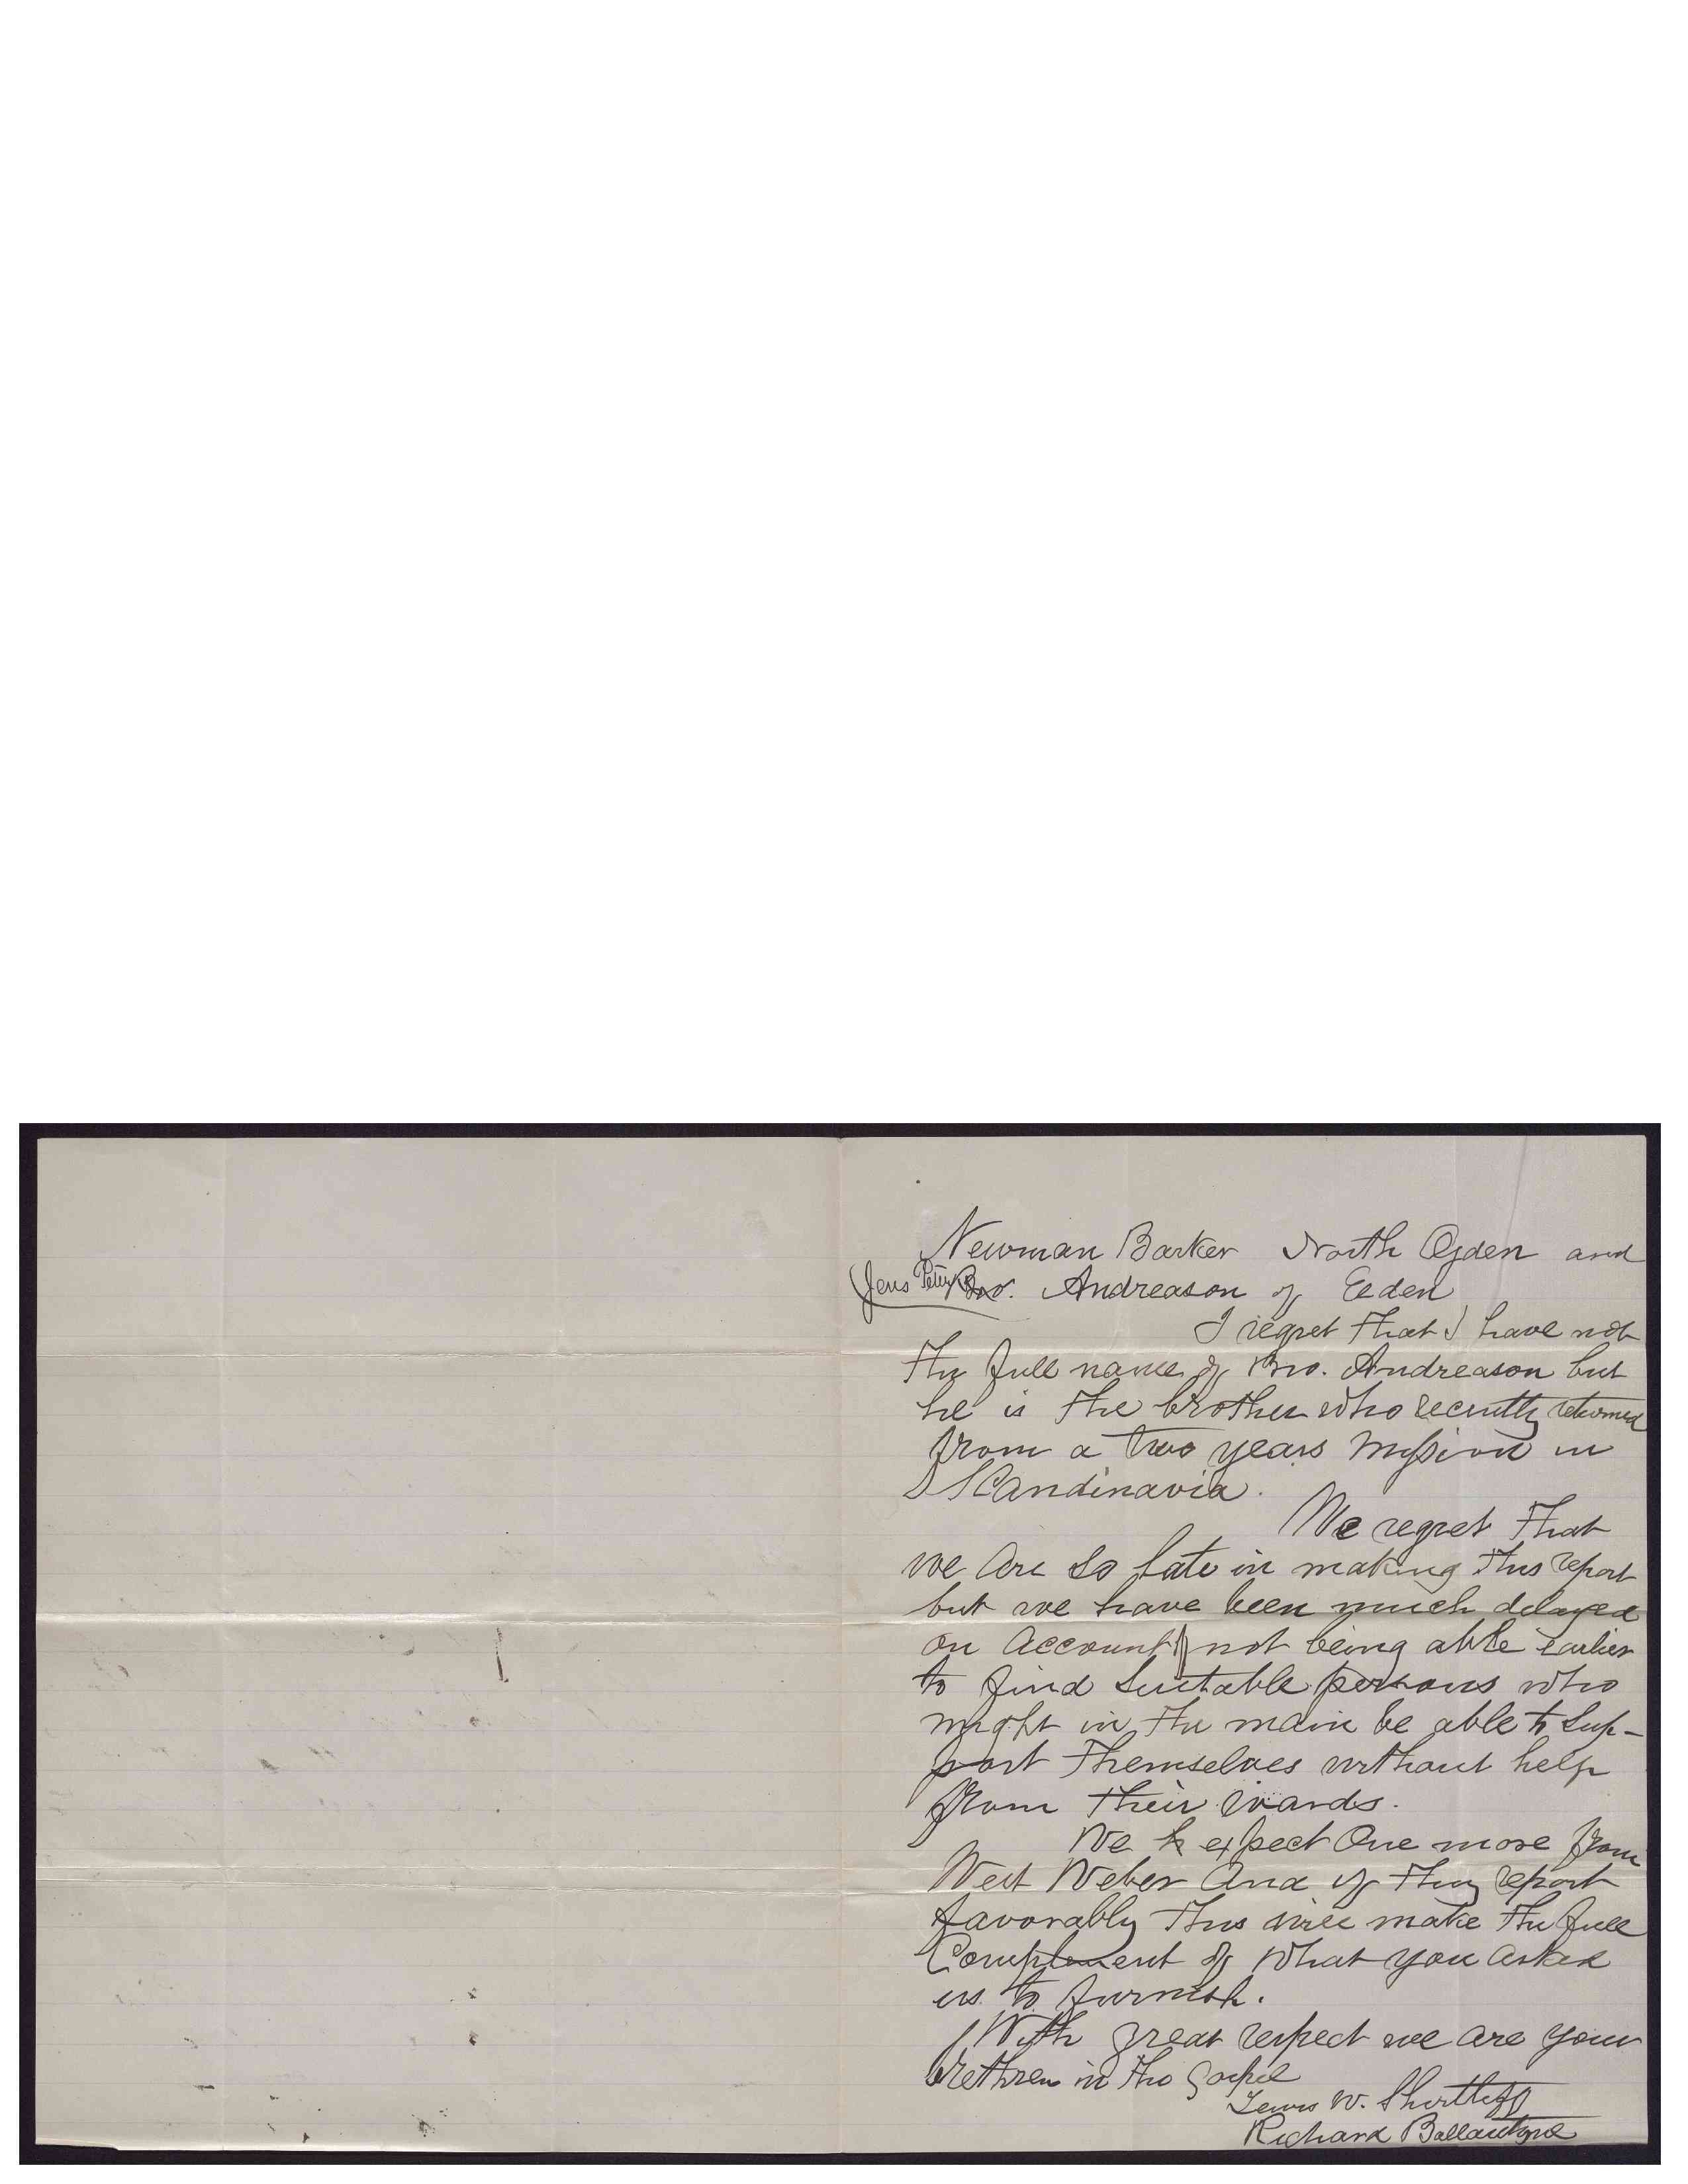 Newman Barker North Ogden and
Jens Peter Bro. Andreason of Eeden
I regret that I have not
the full name of Bro. Andreason but
he is the brother who recently returned
from a two years mission in
Scandinavia.
We regret that
we are so late in making this report
but we have been much delayed
on account of not being able earlier
to find suitable persons who
might in the main be able to sup-
port themselves without help
from their wards.
We h expect One more from
West Weber And if they report
favorably this will make the full
Complement of what you asked
us to furnish.
With great respect we are your
brethren in the gospel
Lewis W. Shurtliff
Richard Ballantyne